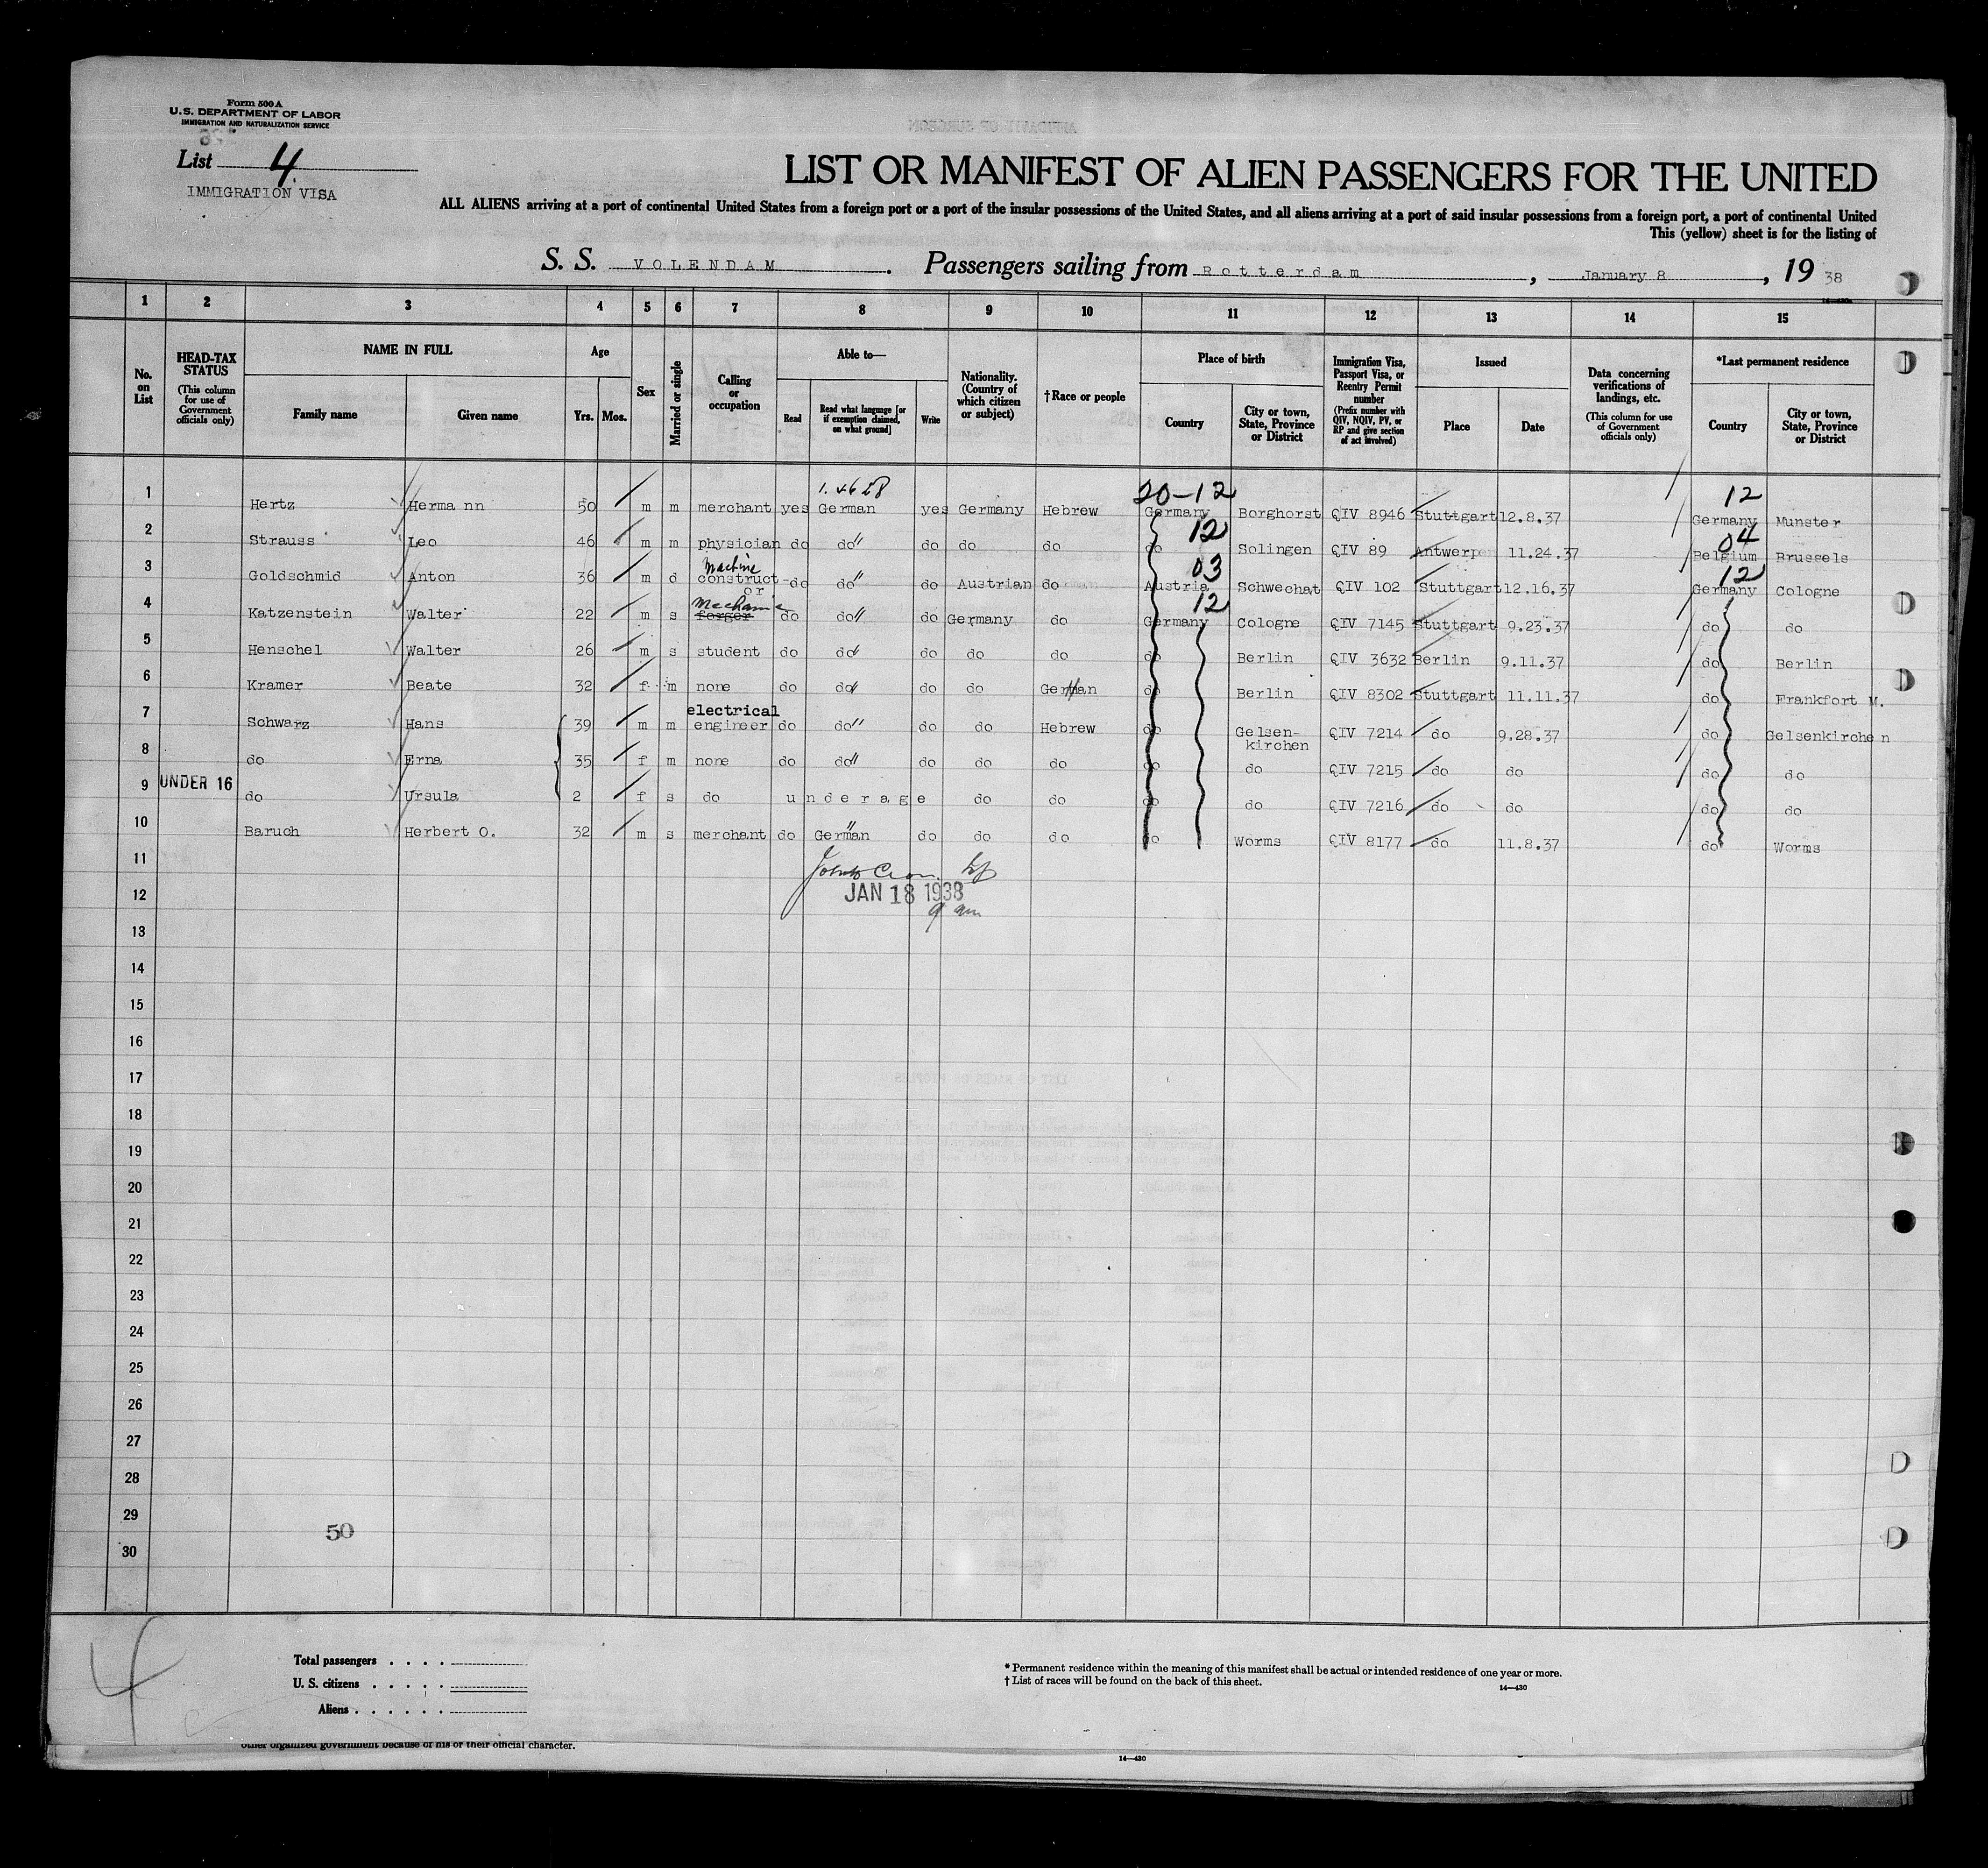 Form 500 A
U.S. DEPARTMENT OF LABOR
IMMIGRATION AND NATURALIZATION SERVICE
List 4
IMMIGRATION VISA
LIST OR MANIFEST OF ALIEN PASSENGERS FOR THE UNITED
ALL ALIENS arriving at a port of continental United States from a foreign port or a port of the insular possessions of the United States, and all aliens arriving at a port of said insular possessions from a foreign port, a port of continental United
This (yellow) sheet is for the listing of
S. S. VOLENDAM. Passengers sailing from Rotterdam, January 8, 19 38
1 2 3 4 5 6 7 8 9 10 11 12 13 14 15
No. on List
HEAD-TAX STATUS (This column for use of Government officials only)
NAME IN FULL Family name Given name
Age Yrs. Mos.
Sex
Married or single
Calling or occupation
Able to— Read Read what language [or if exemption claimed, on what ground] Write
Nationality. (Country of which citizen or subject)
†Race or people
Place of birth Country City or town, State, Province or District
Immigration Visa, Passport Visa, or Reentry Permit number (Prefix number with QIV, NQIV, PV, or RP and give section of act involved)
Issued Place Date
Data concerning verifications of landings, etc. (This column for use of Government officials only)
*Last permanent residence Country City or town, State, Province or District
20-12 12
1 Hertz Hermann 50 m m merchant yes German yes Germany Hebrew Germany Borghorst QIV 8946 Stuttgart 12.8.37 Germany Munster
12 04
2 Strauss Leo 46 m m physician do do " do do do do Solingen QIV 89 Antwerpen 11.24.37 Belgium Brussels
Machine 03 12
3 Goldschmid Anton 36 m d construct-or do do " do Austrian do Austria Schwechat QIV 102 Stuttgart 12.16.37 Germany Cologne
Mechanic 12
4 Katzenstein Walter 22 m s forger do do " do Germany do Germany Cologne QIV 7145 Stuttgart 9.23.37 do do
5 Henschel Walter 26 m s student do do " do do do do Berlin QIV 3632 Berlin 9.11.37 do Berlin
6 Kramer Beate 32 f m none do do " do do German do Berlin QIV 8302 Stuttgart 11.11.37 do Frankfort M.
7 Schwarz Hans 39 m m electrical engineer do do " do do Hebrew do Gelsen-kirchen QIV 7214 do 9.28.37 do Gelsenkirchen
8 do Erna 35 f m none do do " do do do do do QIV 7215 do do do do
9 UNDER 16 do Ursula 2 f s do underage do do do do QIV 7216 do do do do
10 Baruch Herbert O. 32 m s merchant do German " do do do do Worms QIV 8177 do 11.8.37 do Worms
11
12 JAN 18 1938
9 am
13
14
15
16
17
18
19
20
21
22
23
24
25
26
27
28
29 50
30
4
Total passengers . . . .
U. S. citizens . . . . .
Aliens . . . . . .
* Permanent residence within the meaning of this manifest shall be actual or intended residence of one year or more.
† List of races will be found on the back of this sheet.
14—430
other organized government because of his or their official character.
14—430